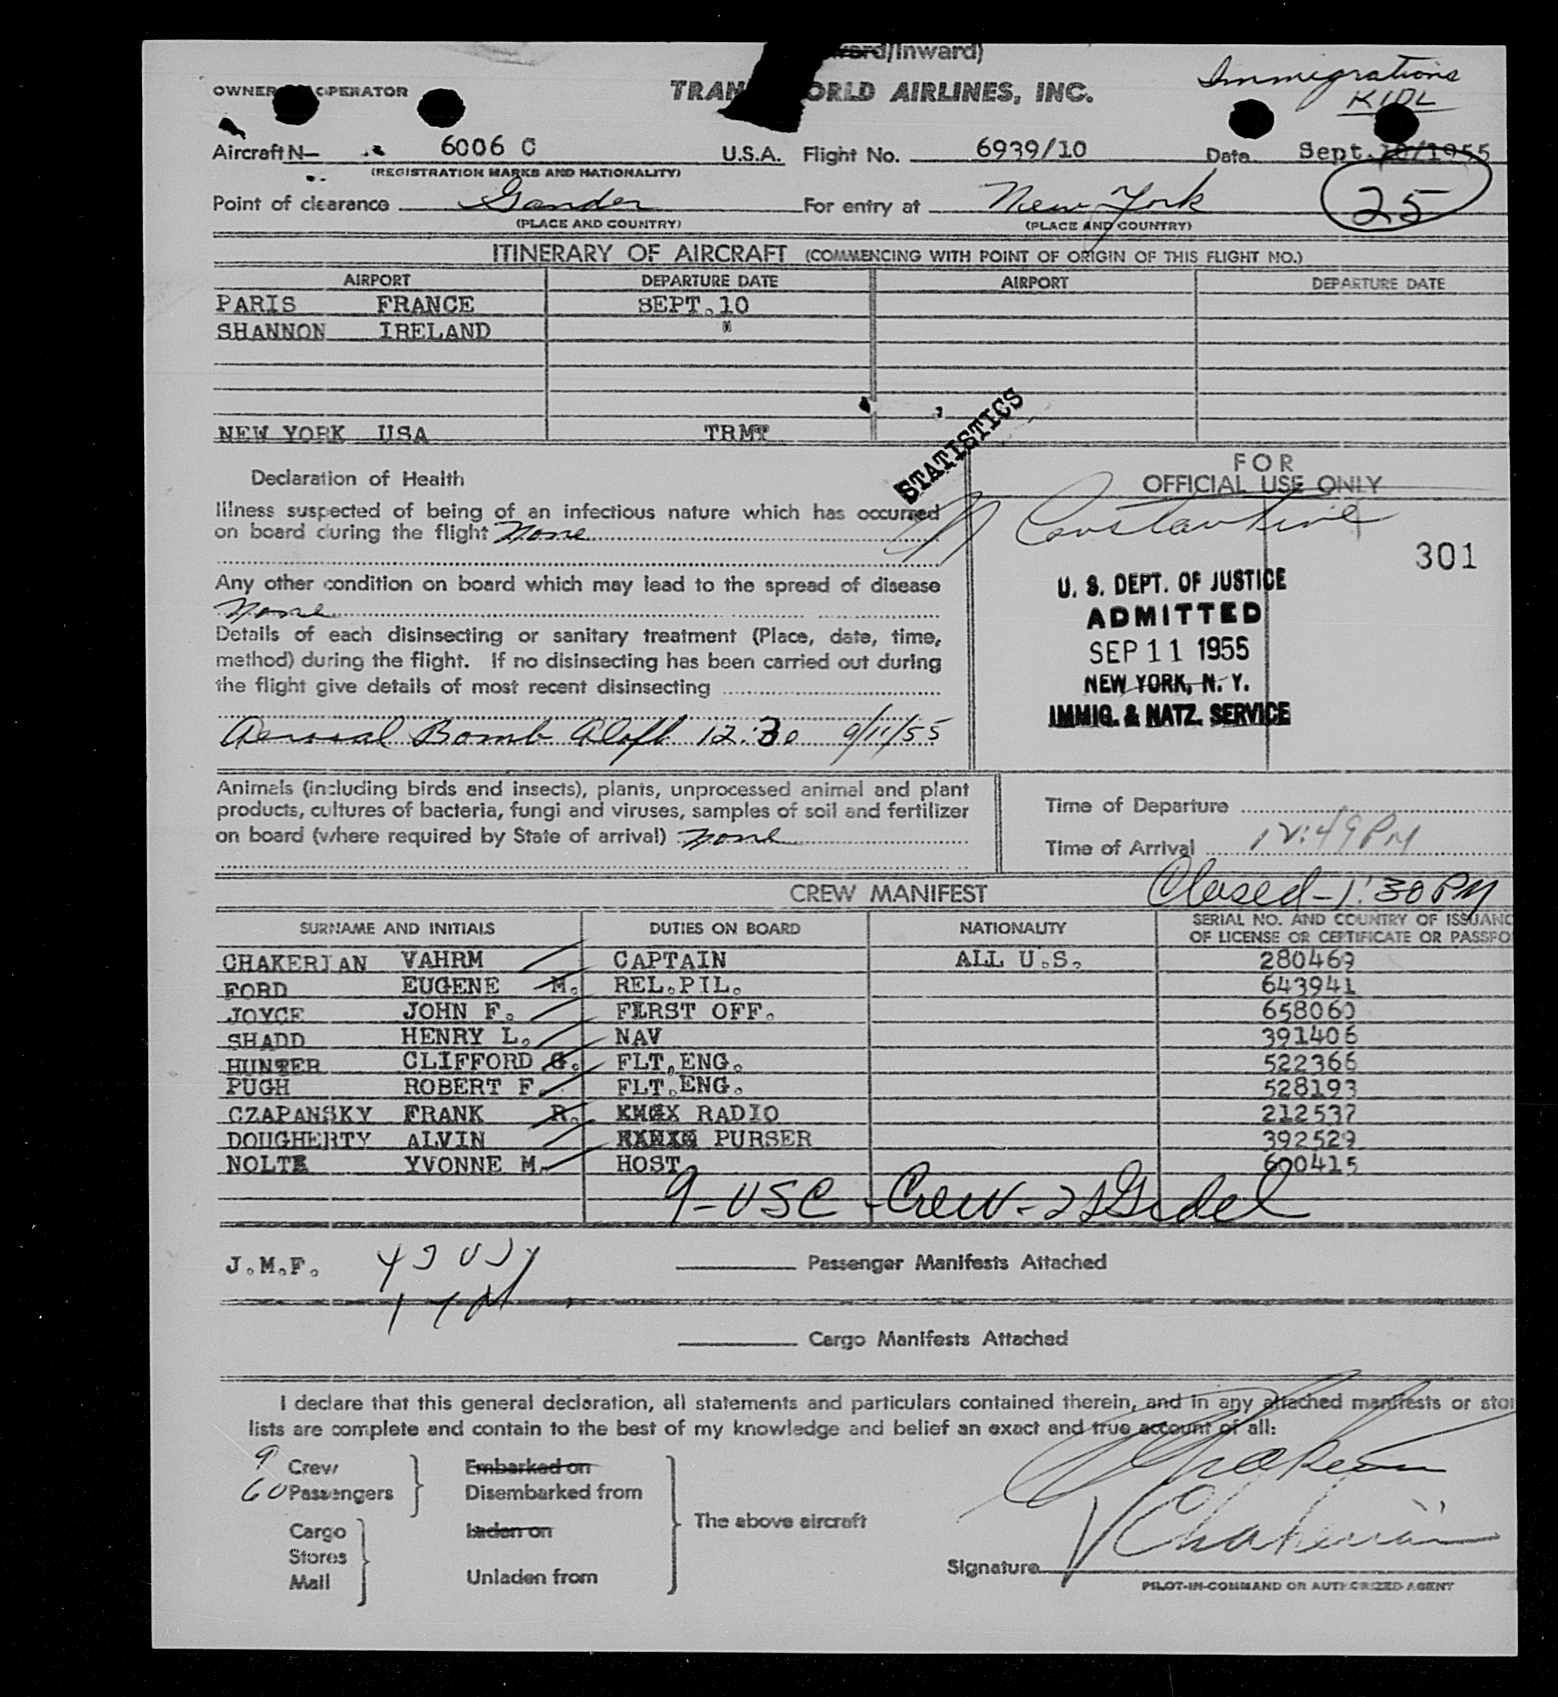 ward/Inward)
OWNER OPERATOR
TRANS WORLD AIRLINES, INC.
Immigrations
KIDL
Aircraft N— 6006 C U.S.A. Flight No. 6939/10 Date Sept. 10/1955
(REGISTRATION MARKS AND NATIONALITY)
Point of clearance Gander For entry at New York 25
(PLACE AND COUNTRY) (PLACE AND COUNTRY)
ITINERARY OF AIRCRAFT (COMMENCING WITH POINT OF ORIGIN OF THIS FLIGHT NO.)
AIRPORT DEPARTURE DATE AIRPORT DEPARTURE DATE
PARIS FRANCE SEPT.10
SHANNON IRELAND "
NEW YORK USA TRMT
STATISTICS
Declaration of Health
FOR
OFFICIAL USE ONLY
Illness suspected of being of an infectious nature which has occurred
on board during the flight None
Constantine
301
Any other condition on board which may lead to the spread of disease
None
Details of each disinsecting or sanitary treatment (Place, date, time,
method) during the flight. If no disinsecting has been carried out during
the flight give details of most recent disinsecting
Aerosal Bomb Aloft 12:30 9/11/55
U. S. DEPT. OF JUSTICE
ADMITTED
SEP 11 1955
NEW YORK, N. Y.
IMMIG. & NATZ. SERVICE
Animals (including birds and insects), plants, unprocessed animal and plant
products, cultures of bacteria, fungi and viruses, samples of soil and fertilizer
on board (where required by State of arrival) None
Time of Departure
Time of Arrival 12:49 PM
CREW MANIFEST Closed - 1:30 PM
SURNAME AND INITIALS DUTIES ON BOARD NATIONALITY SERIAL NO. AND COUNTRY OF ISSUANC
OF LICENSE OR CERTIFICATE OR PASSPO
CHAKERIAN VAHRM CAPTAIN ALL U.S. 280469
FORD EUGENE M. REL.PIL. 643941
JOYCE JOHN F. FIRST OFF. 658060
SHADD HENRY L. NAV 391406
HUNTER CLIFFORD G. FLT.ENG. 522366
PUGH ROBERT F. FLT.ENG. 528193
CZAPANSKY FRANK R. RADIO 212537
DOUGHERTY ALVIN PURSER 392529
NOLTE YVONNE M. HOST 600415
9-USC-Crew-
J.M.F.
Passenger Manifests Attached
Cargo Manifests Attached
I declare that this general declaration, all statements and particulars contained therein, and in any attached manifests or stor
lists are complete and contain to the best of my knowledge and belief an exact and true account of all:
9 Crew
60 Passengers
Embarked on
Disembarked from
Cargo
Stores
Mail
laden on
Unladen from
The above aircraft
Chakerian
Signature V Chakerian
PILOT-IN-COMMAND OR AUTHORIZED AGENT